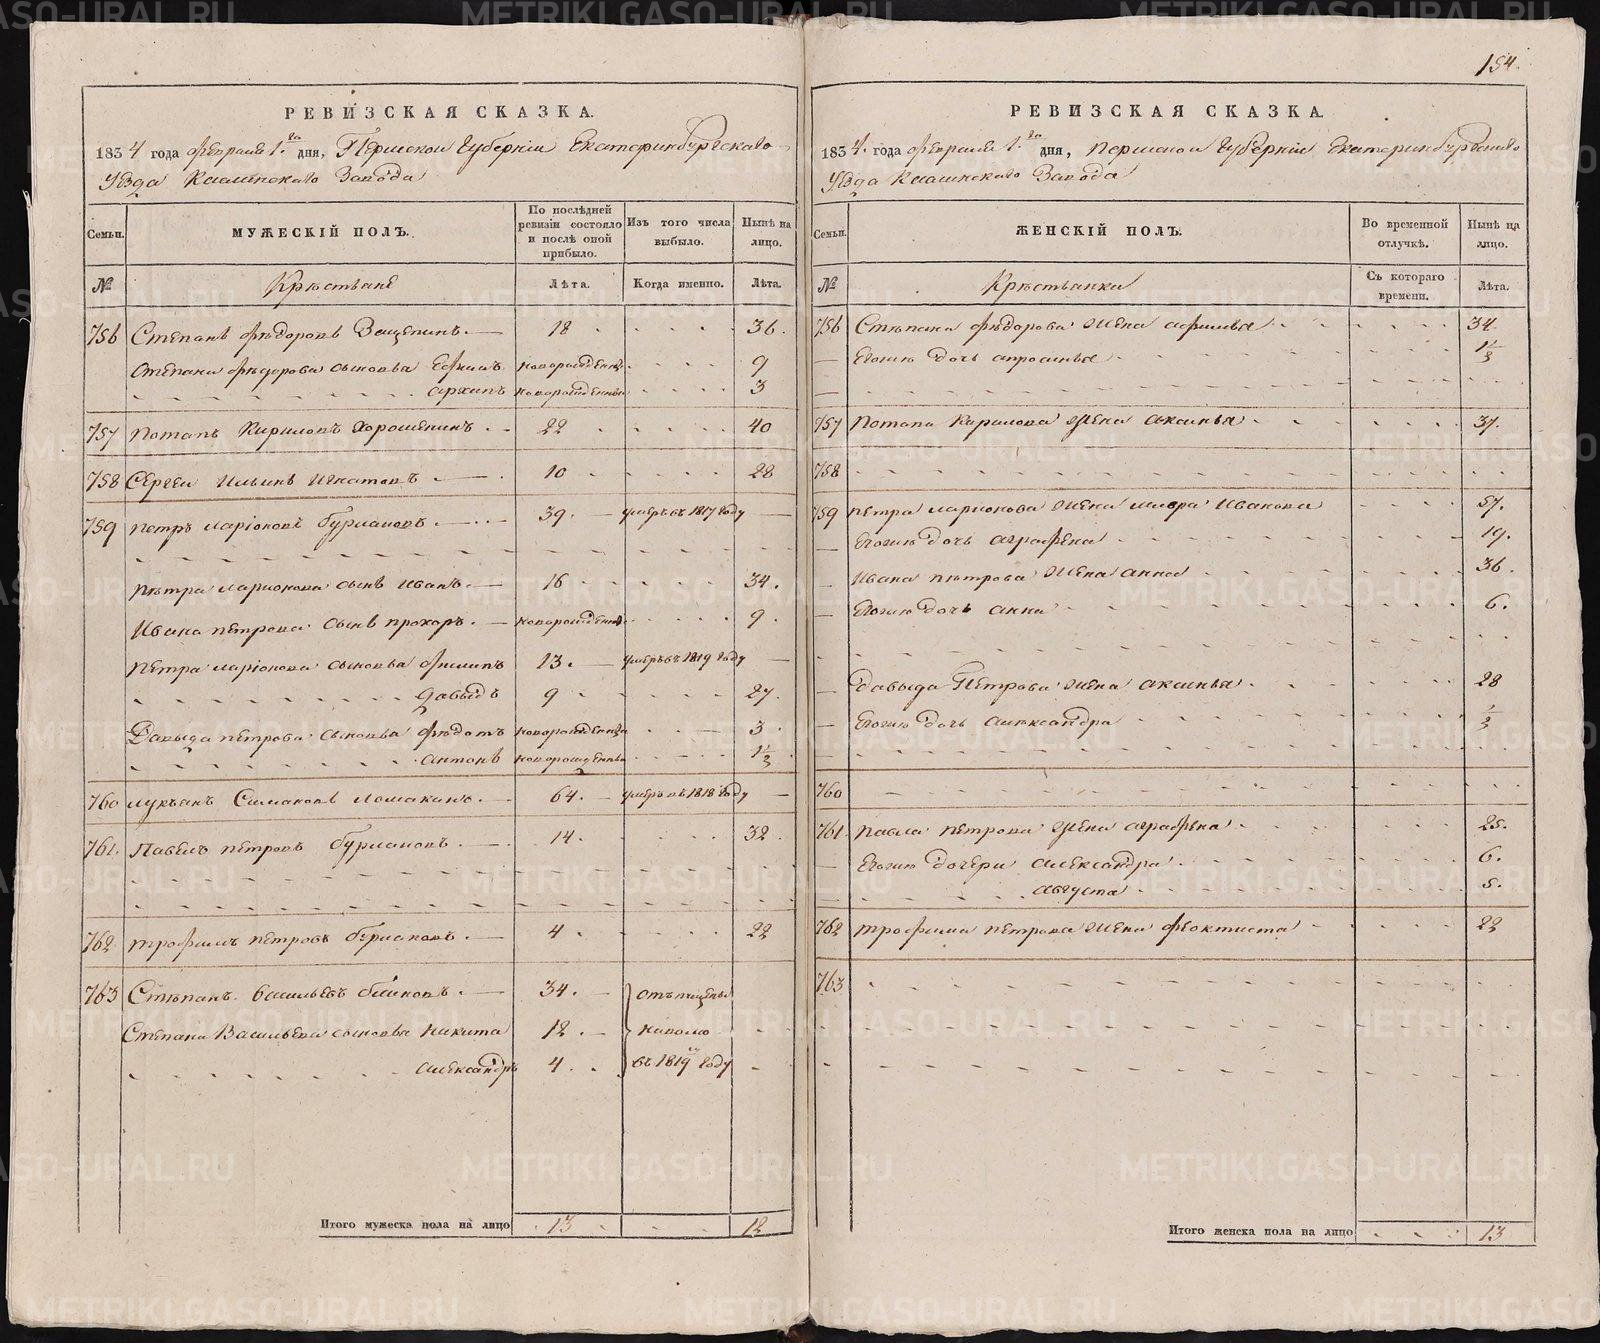 154.
РЕВИЗСКАЯ СКАЗКА.
1834 года февраля 1.го дня, Пермской губернии Екатеринбургскаго
Уезда Каслинскаго Завода
Семьи. МУЖЕСКІЙ ПОЛЪ. По послѣдней ревизіи состояло и послѣ оной прибыло. Изъ того числа выбыло. Нынѣ на лицо.
№ Крестьяне Лѣта. Когда именно. Лѣта.
756 Степанъ Федоровъ Зацепинъ. 18 36.
Степана Федорова сыновья Ефимъ новорожденны 9
архипъ новорожденны 3
757 Потапъ Кириловъ Хорошенинъ 22 40
758 Сергеи Ильинъ Игнатовъ 10 28
759 Петръ Ларіоновъ Бурмановъ. 39. умеръ въ 1817 году
Петра Ларионова сынъ Иванъ. 16 34.
Ивана Петрова сынъ Прохоръ. новорожденны 9.
Петра Ларіонова сыновья Филипъ 13. умеръ въ 1819 году
Давыдъ 9 27.
Давыда Петрова сыновья Федотъ новорожденны 3
антонъ новорожденны 1/3
760 Лукъянъ Симановъ Ломакинъ. 64. умеръ въ 1818 году
761. Павелъ Петровъ Бурмановъ. 14. 32.
762 Трофимъ Петровъ Бурмановъ. 4. 22
763 Степанъ Васильевъ Блиновъ. 34. отъпущены
Степана Васильева сыновья Никита 12. наволю
александръ 4. въ 1819 году
Итого мужеска пола на лицо 13 12
РЕВИЗСКАЯ СКАЗКА.
1834. года февраля 1.го дня, Пермской губернии Екатеринбургскаго
Уезда Каслинскаго Завода
Семьи. ЖЕНСКІЙ ПОЛЪ. Во временной отлучкѣ. Нынѣ на лицо.
№ Крестьянки Съ котораго времени. Лѣта.
756 Степана Федорова жена афимья 34.
Егоже дочь апросинья 1/3
757 Потапа Карилова жена аксинья 37.
758
759 Петра Ларионова жена Мавра Иванова 57.
Егоже дочь аграфена 19.
Ивана Петрова жена анна 36.
Егоже дочь анна 6.
Давыда Петрова жена аксинья 28
Егоже дочь александра 1/2
760
761. Павла Петрова жена аграфена 25.
Егоже дочери александра 6.
августа 5.
762 Трофима Петрова жена феоктиста 22
763
Итого женска пола на лицо 13
METRIKI.GASO-URAL.RU